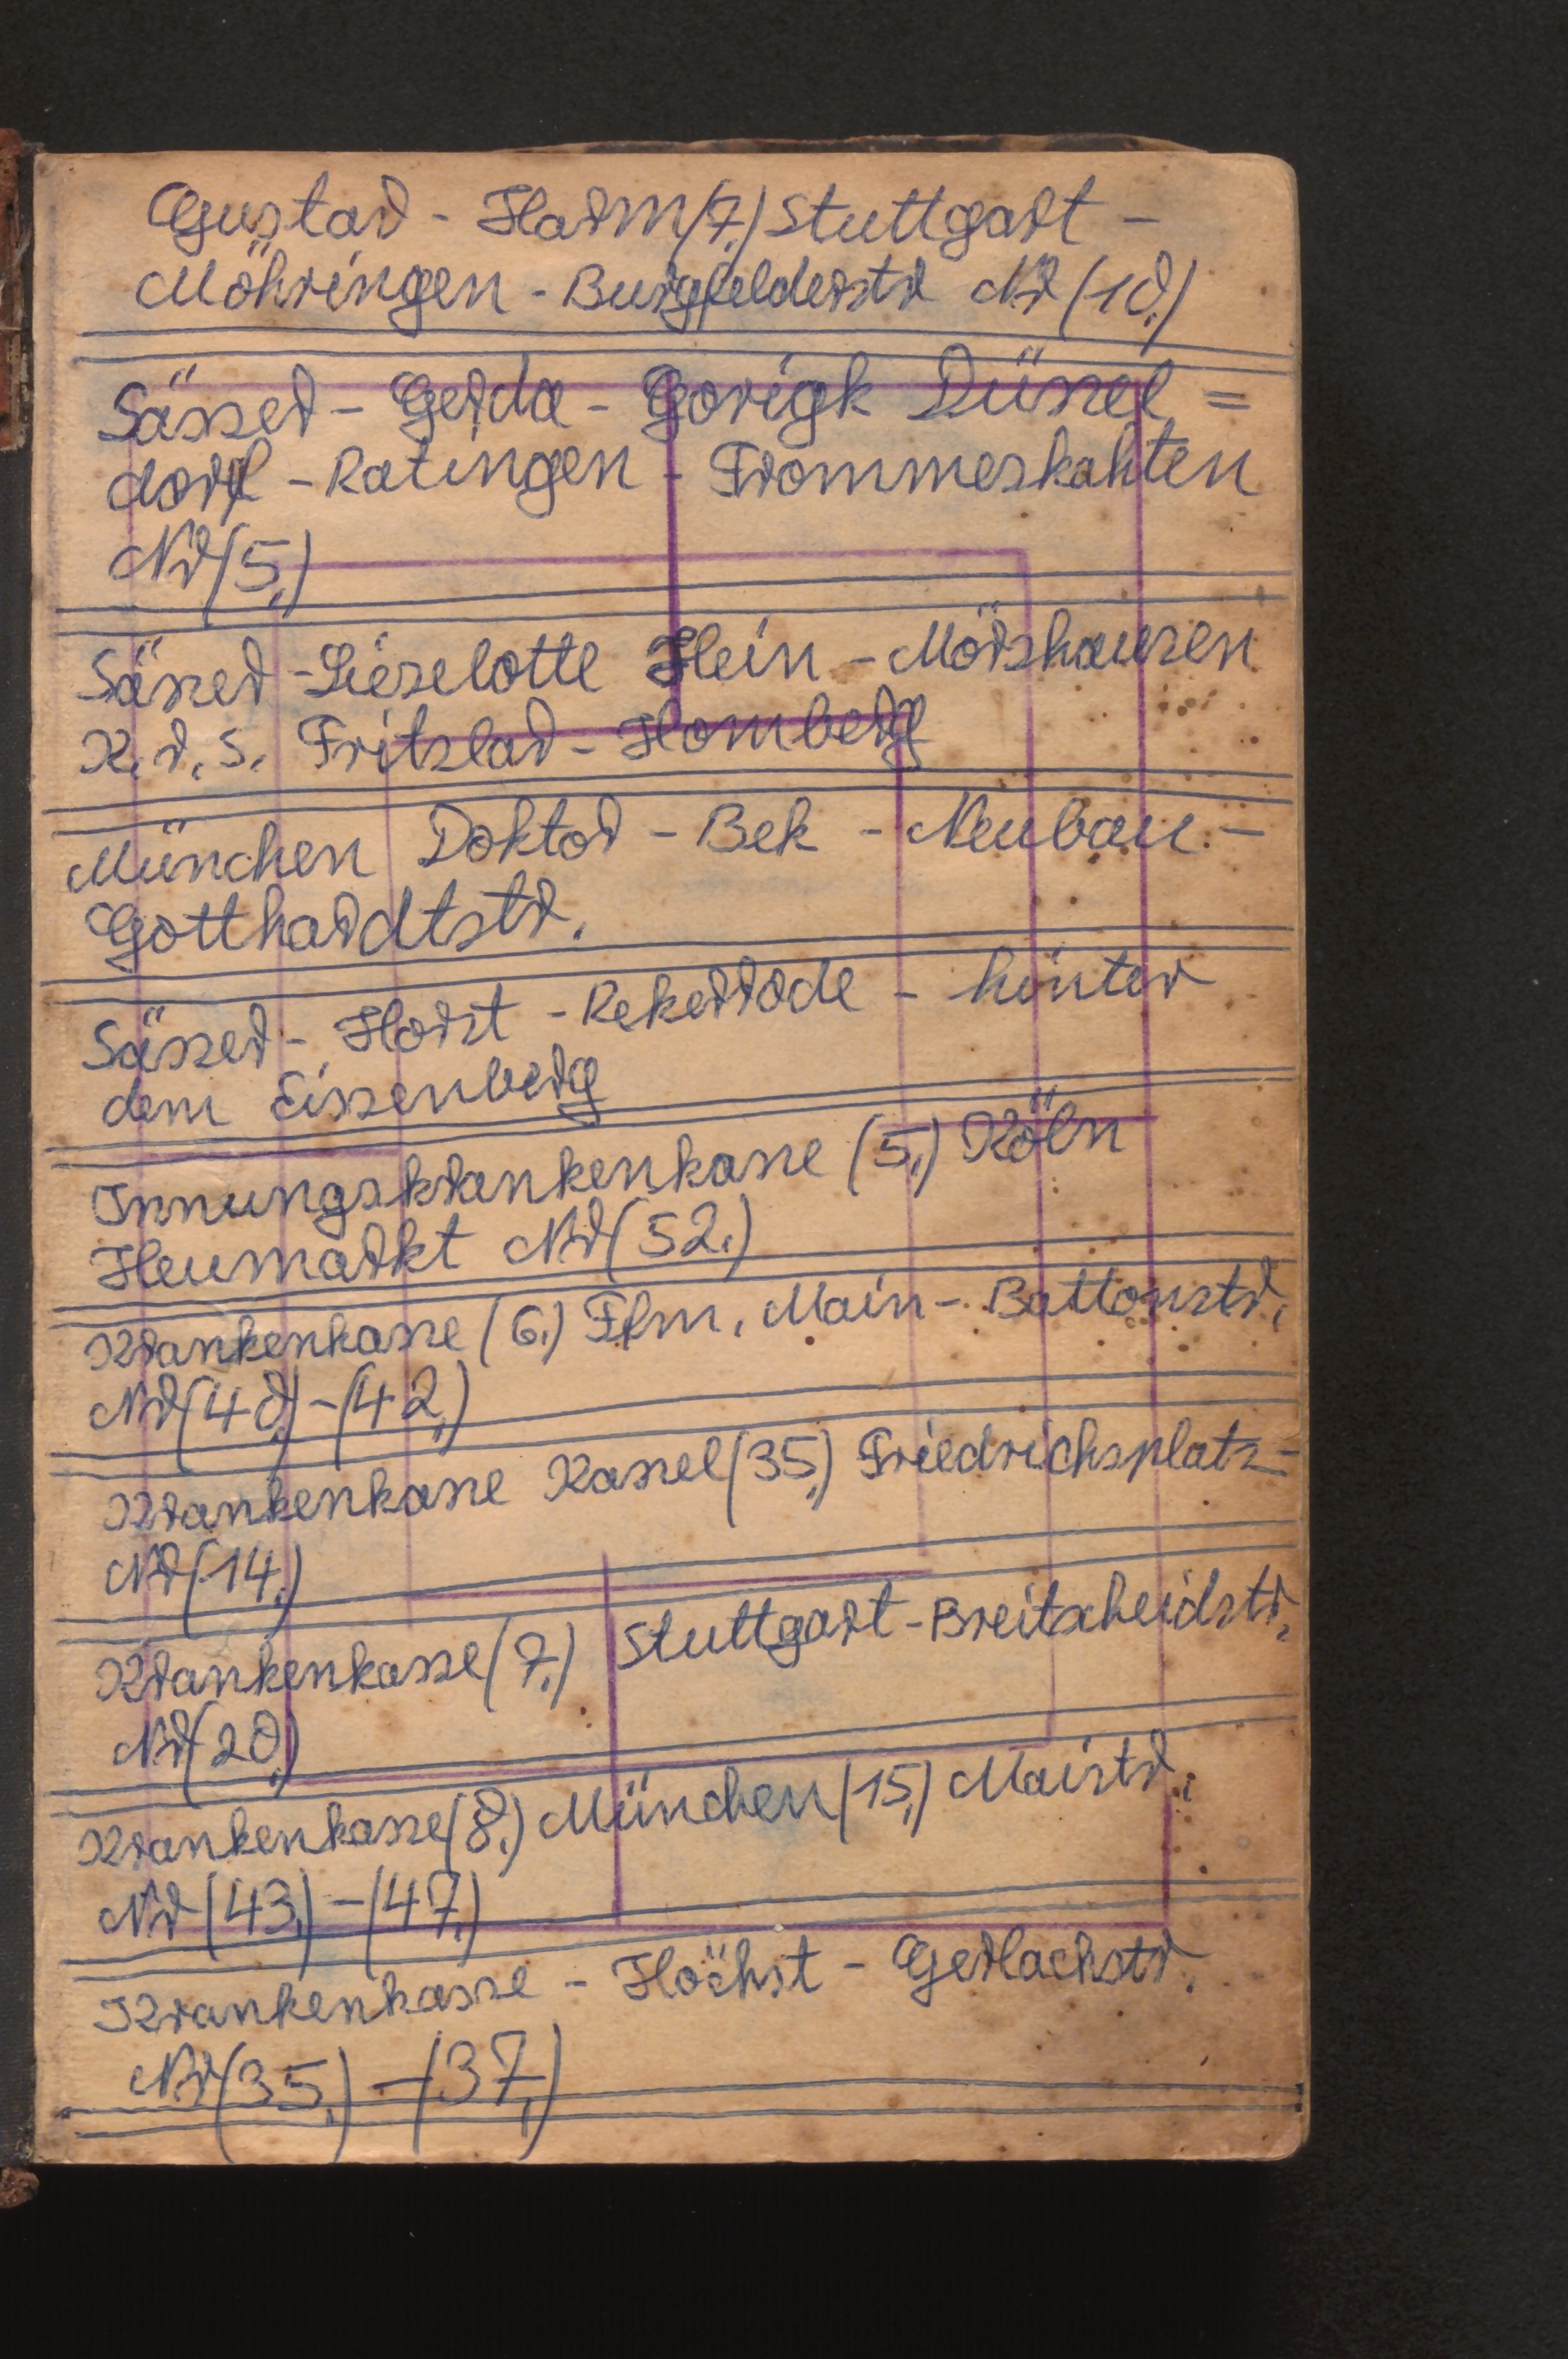 Gustav - Harm (7.) Stuttgart -
Möhringen - Burgfelderstr Nr (10.)
Sässer - Gerda - Gorigk Düssel =
dorf - Ratingen - Frommeskahten
Nr (5.)
Sässer - Liezelotte Hein - Mörshausen
K. r. S. Fritzlar - Homberg
München Doktor - Bek - Neubau -
Gotthardtstr.
Sässer - Horst - Rekerrode - hinter
dem Eissenberg
Innungskrankenkasse (5.) Köln
Heumarkt Nr (52.)
Krankenkasse (6.) Ffm. Main - Battonstr.
Nr (40.) - (42.)
Krankenkasse Kassel (35.) Friedrichsplatz -
Nr (14.)
Krankenkasse (7.) Stuttgart - Breitscheidstr.
Nr (20.)
Krankenkasse (8.) München (15.) Maistr.
Nr (43.) - (47.)
Krankenkasse - Höchst - Gerlachstr.
Nr (35.) - (37.)